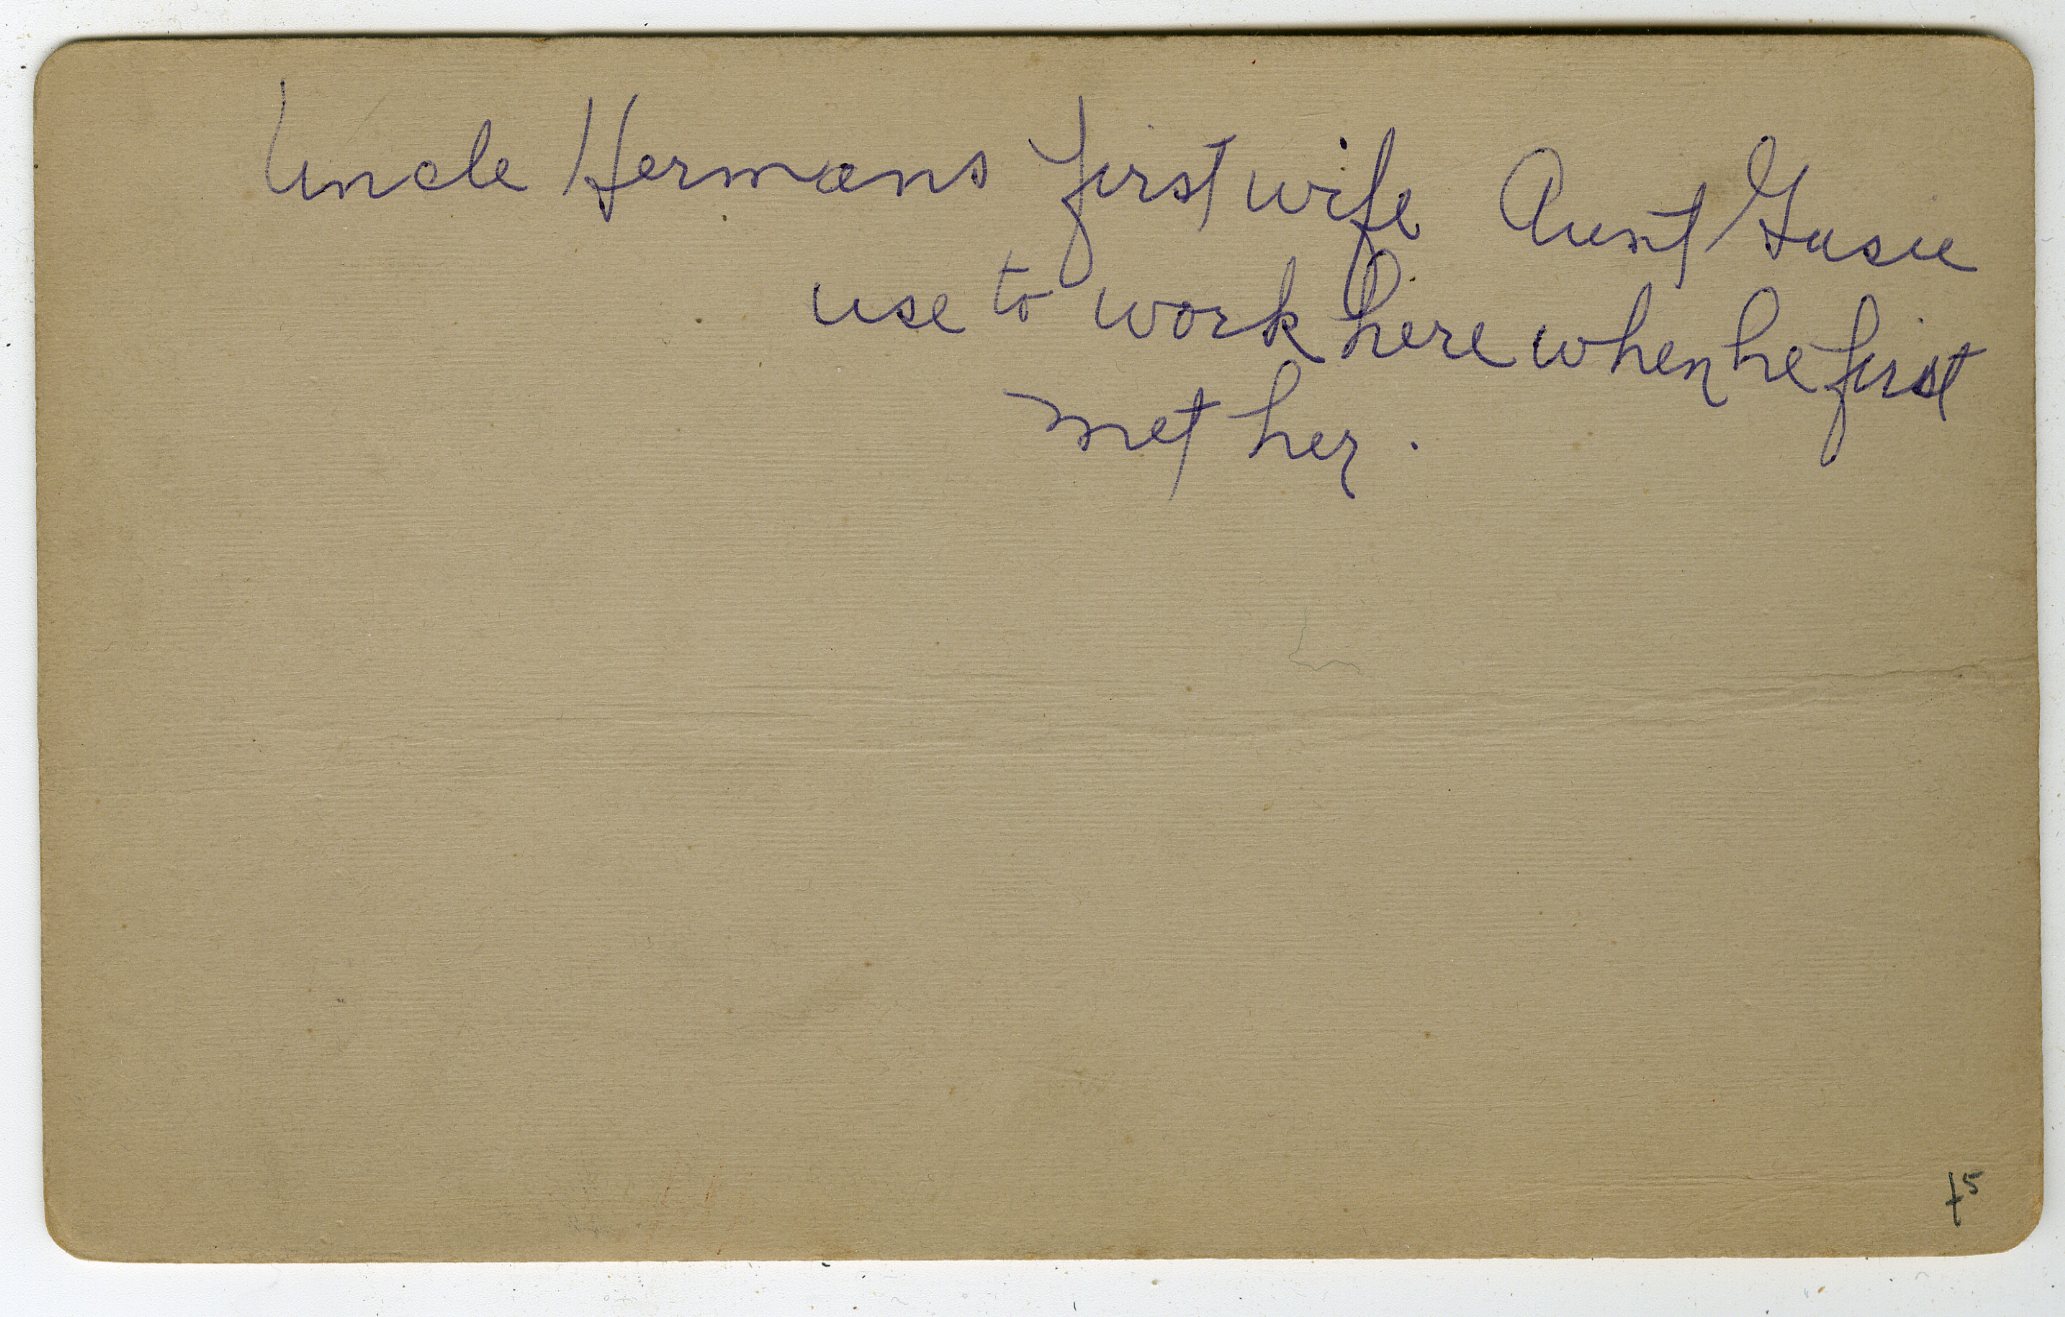 Uncle Hermans first wife Aunt Gusie
use to work here when he first
met her.